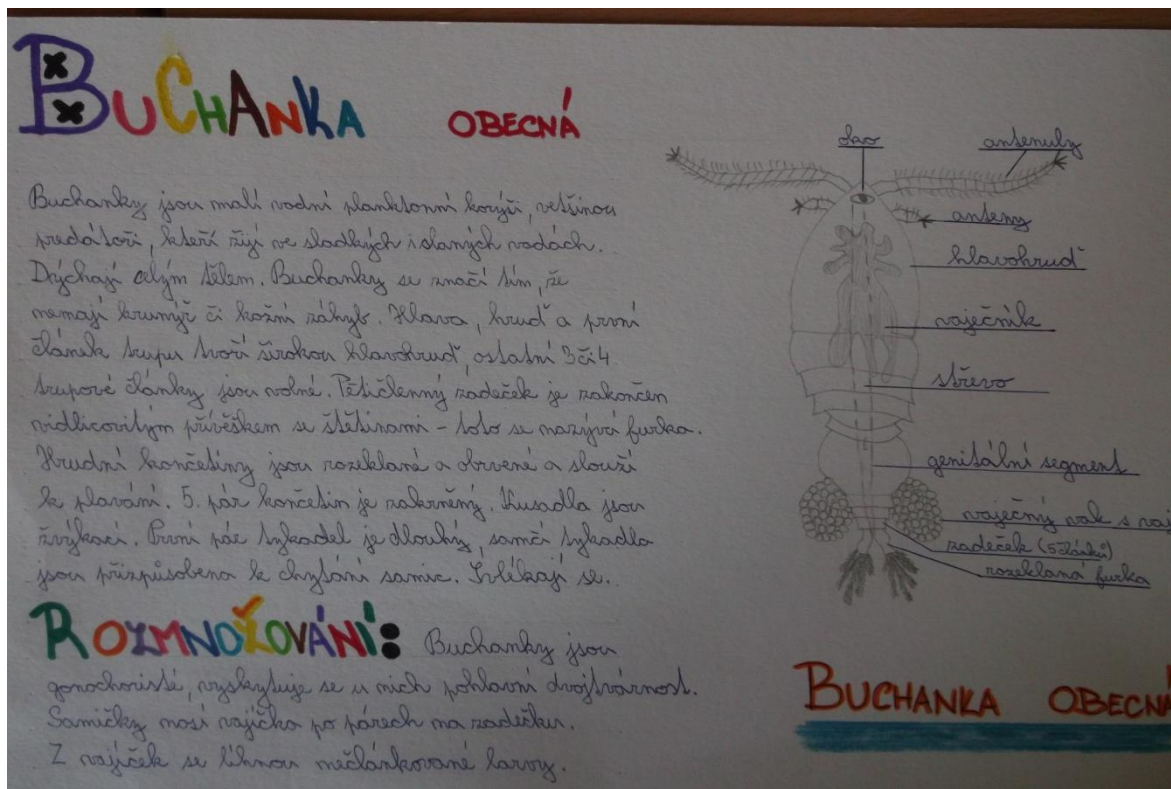 BUCHANKA OBECNÁ
Buchanky jsou malí vodní planktonní korýši, většinou
predátoři, kteří žijí ve sladkých i slaných vodách.
Dýchají celým tělem. Buchanky se značí tím, že
nemají krunýř či kožní záhyb. Hlava, hruď a první
článek trupu tvoří širokou hlavohruď, ostatní 3 či 4
trupové články jsou volné. Pětičlenný zadeček je zakončen
vidlicovitým přívěškem se štětinami - toto se nazývá furka.
Hrudní končetiny jsou rozeklané a obrvené a slouží
k plavání. 5. pár končetin je zakrněný. Kusadla jsou
žvýkací. První pár tykadel je dlouhý, samčí tykadla
jsou přizpůsobena k chytání samic. Svlékají se.
ROZMNOŽOVÁNÍ: Buchanky jsou
gonochoristé, vyskytuje se u nich pohlavní dvojtvárnost.
Samičky nosí vajíčka po párech na zadečku.
Z vajíček se líhnou nečlánkované larvy.
oko
antenuly
anteny
hlavohruď
vaječník
střevo
genitální segment
vaječný vak s vaj
zadeček (5 článků)
rozeklaná furka
BUCHANKA OBECNÁ